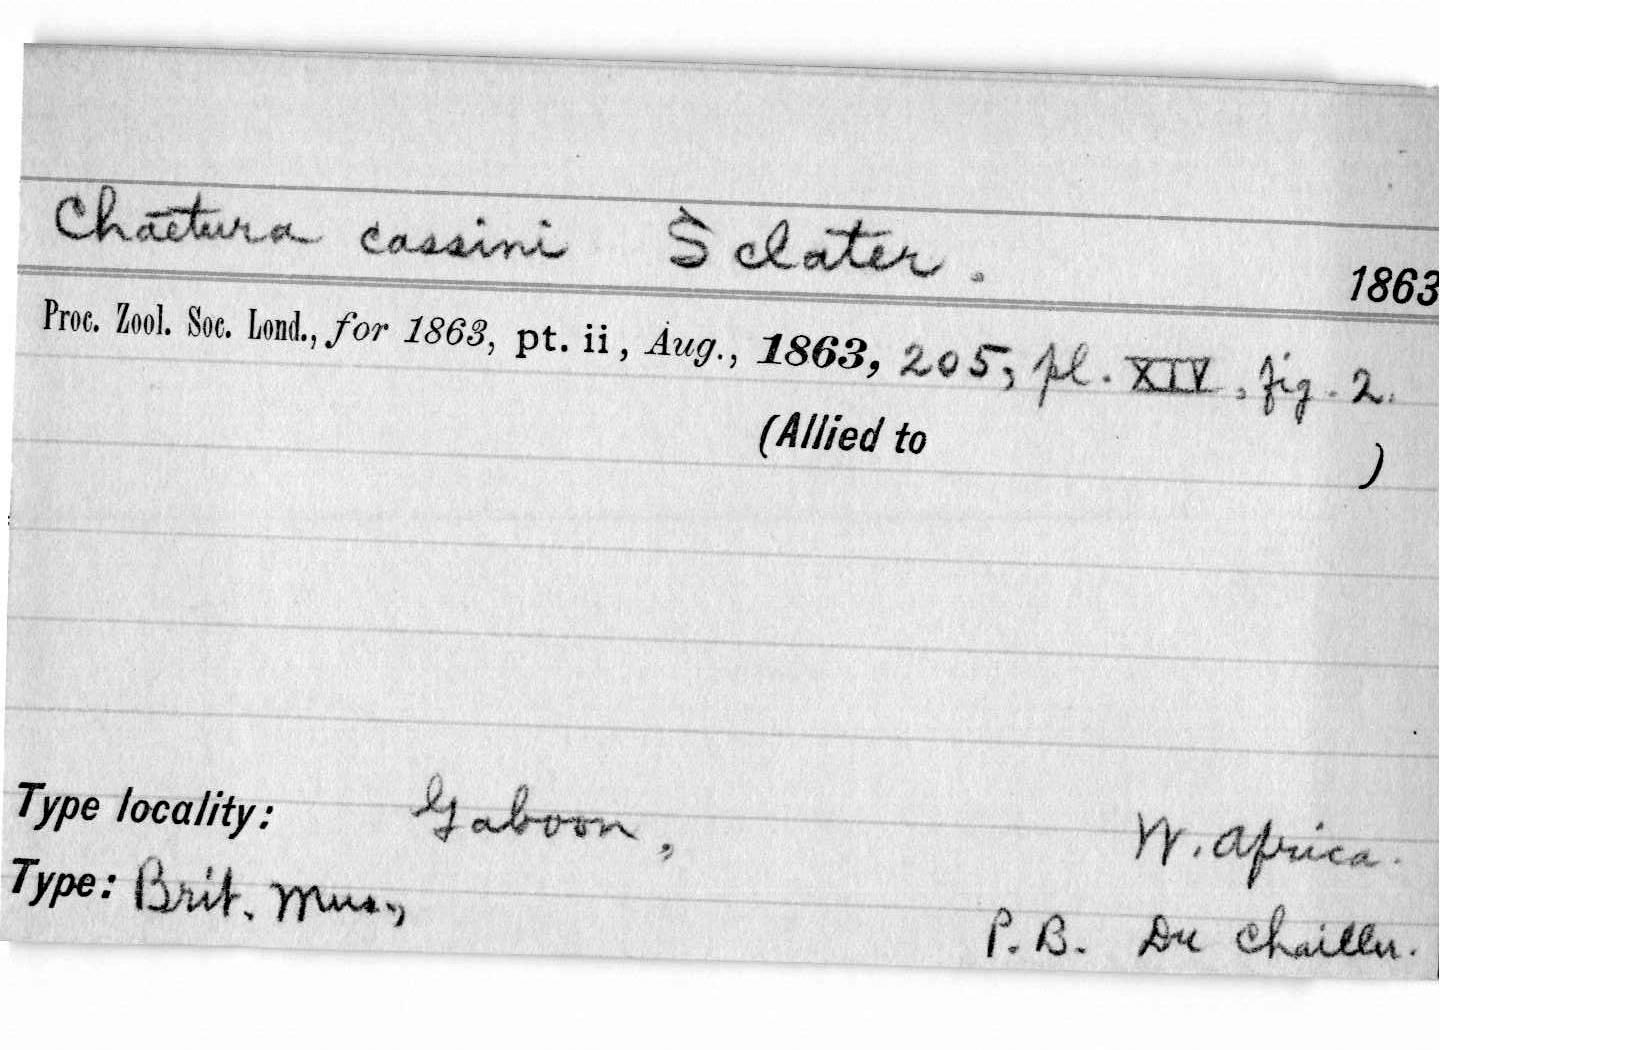 Chaetura cassini Sclater. 1863
Proc. Zool. Soc. Lond., for 1863, pt. ii, Aug., 1863, 205, pl. XIV, fig. 2.
(Allied to )
Type locality: Gaboon, W. Africa.
Type: Brit. Mus., P. B. Du Chaillu.